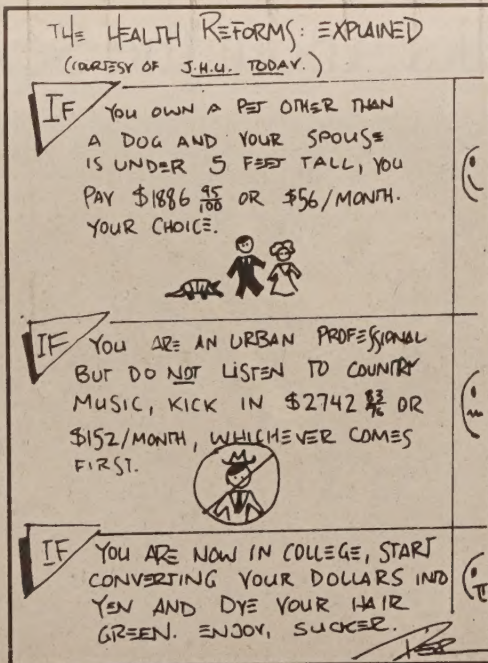 THE HEALTH REFORMS: EXPLAINED
(COURTESY OF J.H.U. TODAY.)
IF YOU OWN A PET OTHER THAN
A DOG AND YOUR SPOUSE
IS UNDER 5 FEET TALL, YOU
PAY $1886 95/100 OR $56/MONTH.
YOUR CHOICE.
IF YOU ARE AN URBAN PROFESSIONAL
BUT DO NOT LISTEN TO COUNTRY
MUSIC, KICK IN $2742 83/76 OR
$152/MONTH, WHICHEVER COMES
FIRST.
IF YOU ARE NOW IN COLLEGE, START
CONVERTING YOUR DOLLARS INTO
YEN AND DYE YOUR HAIR
GREEN. ENJOY, SUCKER.